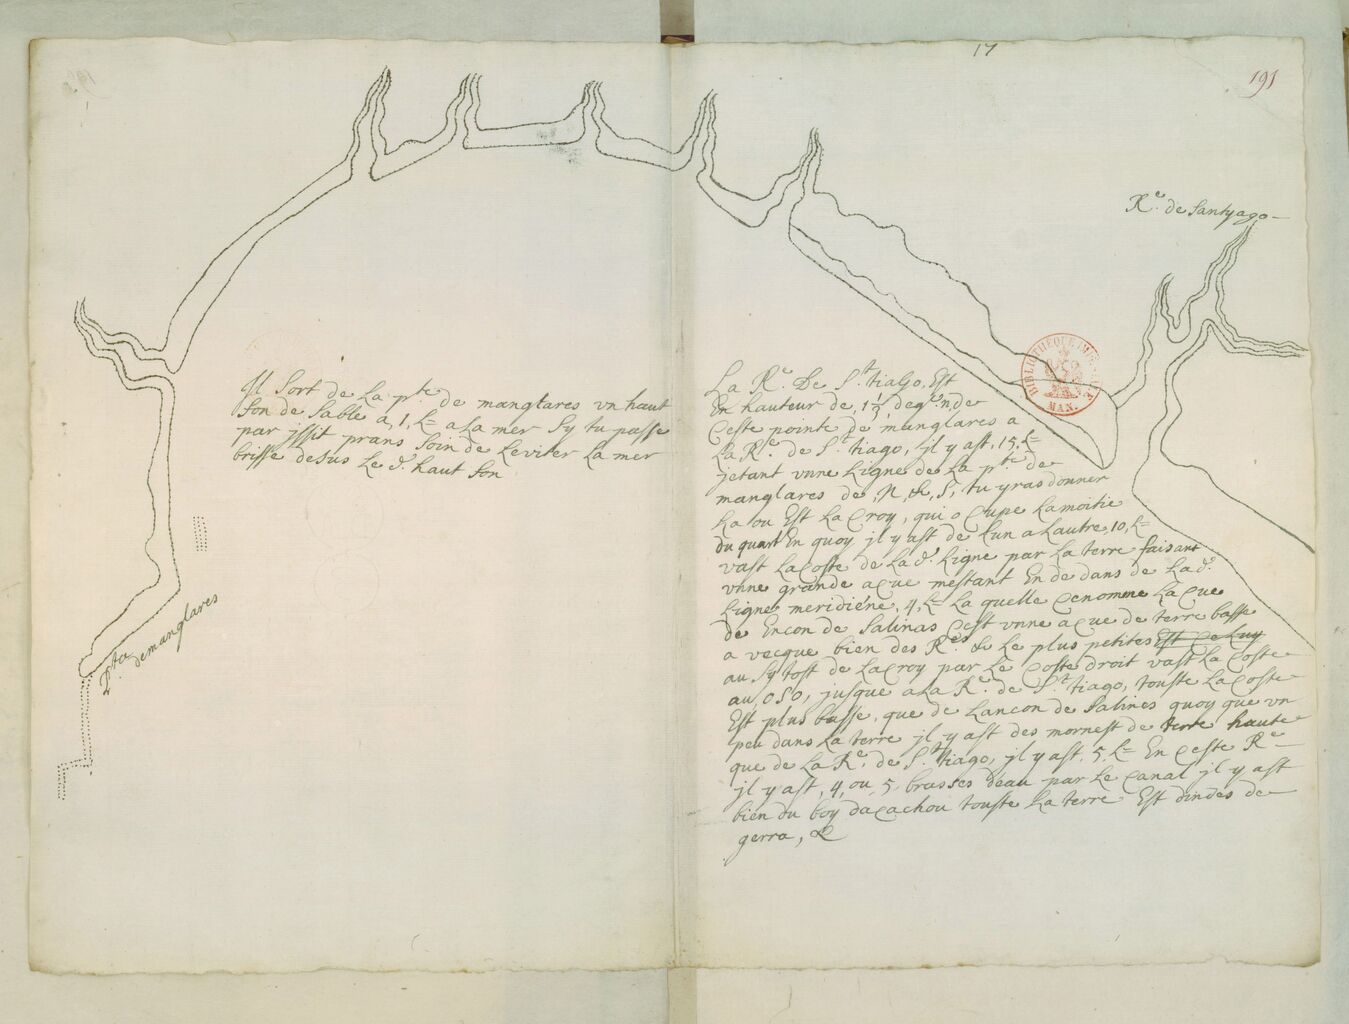 17
191
R.e de Santyago
Il sort de La p.te de manglares vn haut
fon de sable a, 1, L= a La mer sy tu passe
par jssit prans soin de Leviter La mer
brisse desus Le d.t haut fon
La R.e De S.t tiago, Est
En hauteur de, 1 1/2, deg.
Ceste pointe de manglares a
La R.e de S.t tiago, jl y ast, 15, L=
jetant vnne Ligne de La p.te de
manglares de, N, &, S, tu yras donner
La ou Est La Croy, qui ocupe La moitie
du quart En quoy jl y ast de Lun a Lautre, 10, L=
vast La Coste de La d.t Ligne par La terre faisant
vnne grande acue mestant En de dans de La d.t
Ligne meridiene, 4, L= La quelle Ce nomme La Cue
de Encon de Salinas Cest vnne acue de terre basse
a vecque bien des R.es & Le plus petites Est Celuy
au sytost de La Croy par Le Coste droit vast La Coste
au, oso, jusque a La R.e de S.t tiago, touste La Coste
Est plus basse, que de Lancon de Salines quoy que vn
peu dans La terre jl y ast des mornest de terre haute
que de La R.e de S.t tiago, jl y ast, 5, L= En Ceste R.e
jl y ast, 4, ou, 5, brasses deau par Le Canal jl y ast
bien du boy dacachou touste La terre Est dindes de
gerra, &
P.ta de manglares
BIBLIOTHEQUE IMPERIALE
MAN.